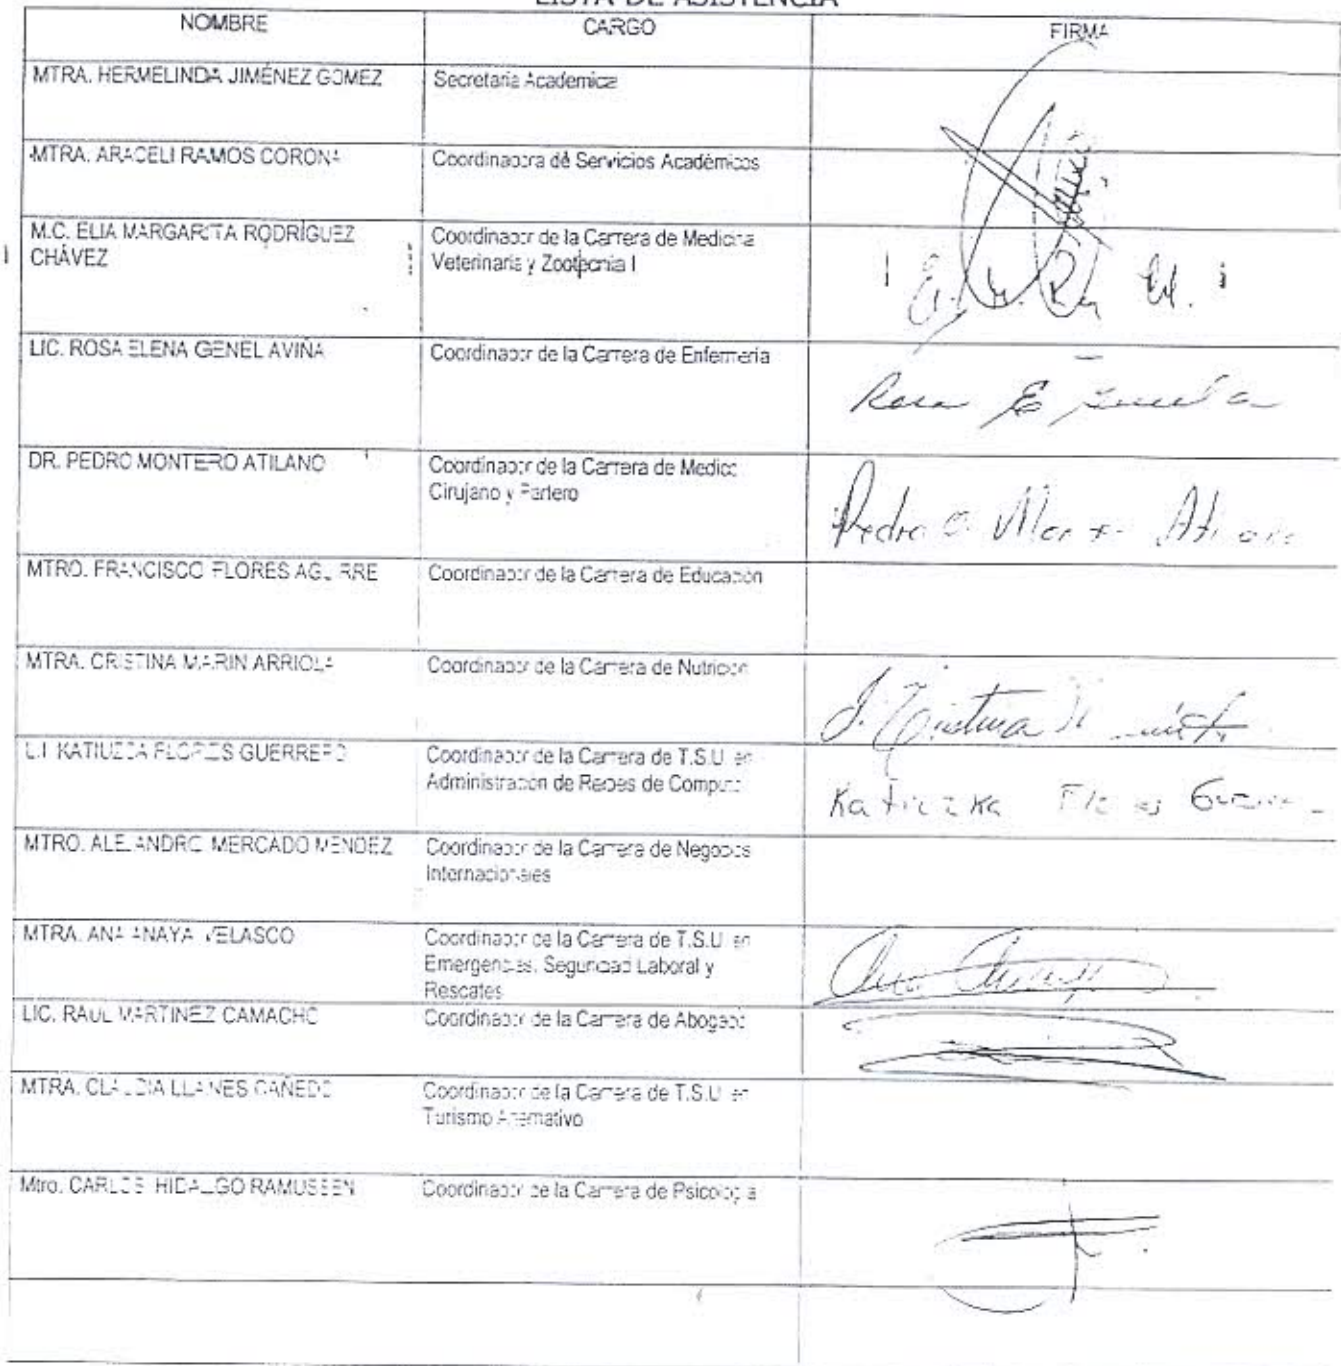 LISTA DE ASISTENCIA
NOMBRE
CARGO
FIRMA
MTRA. HERMELINDA JIMÉNEZ GOMEZ
Secretaria Academica
MTRA. ARACELI RAMOS CORONA
Coordinadora de Servicios Académicos
M.C. ELIA MARGARITA RODRÍGUEZ
CHÁVEZ
Coordinador de la Carrera de Medicina
Veterinaria y Zootecnia I
LIC. ROSA ELENA GENEL AVIÑA
Coordinador de la Carrera de Enfermeria
Rosa E
DR. PEDRO MONTERO ATILANO
Coordinador de la Carrera de Medico
Cirujano y Partero
Pedro
MTRO. FRANCISCO FLORES AGUIRRE
Coordinador de la Carrera de Educación
MTRA. CRISTINA MARIN ARRIOLA
Coordinador de la Carrera de Nutricion
J. Cristina
L.I. KATIUZCA FLORES GUERRERO
Coordinador de la Carrera de T.S.U. en
Administración de Redes de Computo
Katiuzka Flores
MTRO. ALEJANDRO MERCADO MENDEZ
Coordinador de la Carrera de Negocios
Internacionales
MTRA. ANA ANAYA VELASCO
Coordinador de la Carrera de T.S.U. en
Emergencias, Seguridad Laboral y
Rescates
Ana Anaya
LIC. RAUL MARTINEZ CAMACHO
Coordinador de la Carrera de Abogado
MTRA. CLAUDIA LLANES CAÑEDO
Coordinador de la Carrera de T.S.U. en
Turismo Alternativo
Mtro. CARLOS HIDALGO RAMUSSEN
Coordinador de la Carrera de Psicologia